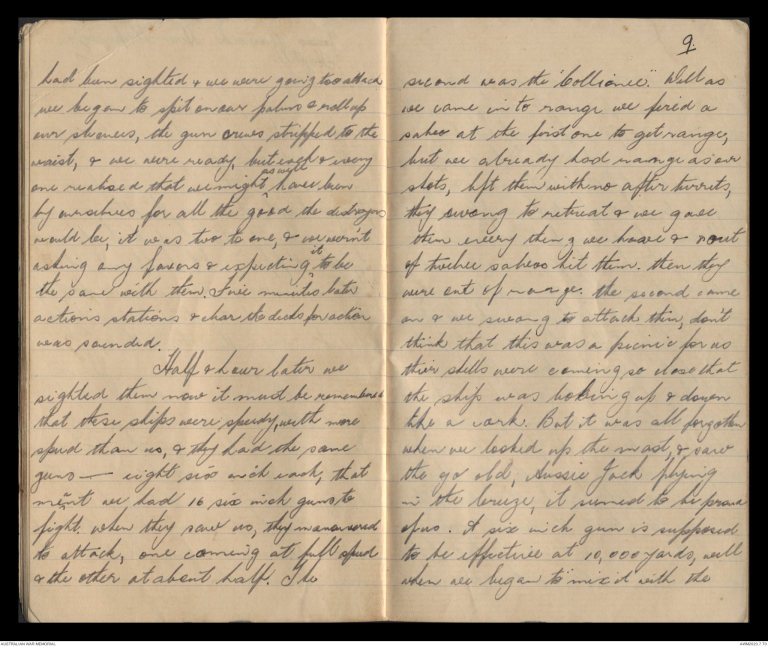 had been sighted & we were going to attack
we began to spit on our palms & roll up
our sleeves, the gun crews stripped to the
waist, & we were ready, but each & every
one realised that we might as well have been
by ourselves for all the good the destroyers
would be, it was two to one, & we weren't
asking any favors & expecting it to be
the same with them. Five minutes later
actions stations & clear the decks for action
was sounded.
Half & hour later we
sighted them now it must be remembered
that these ships were speedy, with more
speed than us, & they had the same
guns — eight six inch each, that
ment we had 16 six inch guns to
fight. when they saw us, they manouvered
to attack, one coming at full speed
& the other at about half. The
9.
second was the "Collionee". Well as
we came in to range we fired a
salvo at the first one to get range,
but we already had range as our
shots, left them with no after turrets,
they swong to retreat & we gave
them every thing we have & out
of twelve salvos hit them. then they
were out of range. the second came
on & we swong to attack thin, don't
think that this was a picnic for us
their shells were coming so close that
the ship was bobing up & down
like a cork. But it was all forgotten
when we looked up the mast, & saw
the go old, Aussie Jack flying
in the breeze, it semed to be proud
of us. A six inch gun is supposed
to be effective at 10,000 yards, well
when we began to "mix it with the
AUSTRALIAN WAR MEMORIAL